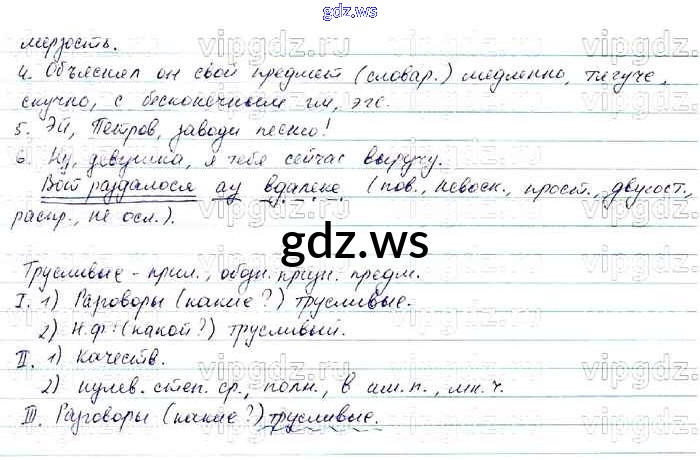 gdz.ws
мерзость.
4. Объяснял он свой предмет (словар.) медленно, тягуче,
скучно, с бесконечным гм, эге.
5. Эй, Петров, заводи песню!
6. Ну, девушка, я тебя сейчас выручу.
Вот раздалося ау вдалеке (пов., невоск., прост., двусост.,
распр., не осл.).
gdz.ws
Трусливые - прил., обозн. призн. предм.
I. 1) Разговоры (какие?) трусливые.
2) Н.ф: (какой?) трусливый.
II. 1) Качеств.
2) нулев. степ. ср., полн., в им.п., мн.ч.
III. Разговоры (какие?) трусливые.
gdz.ws